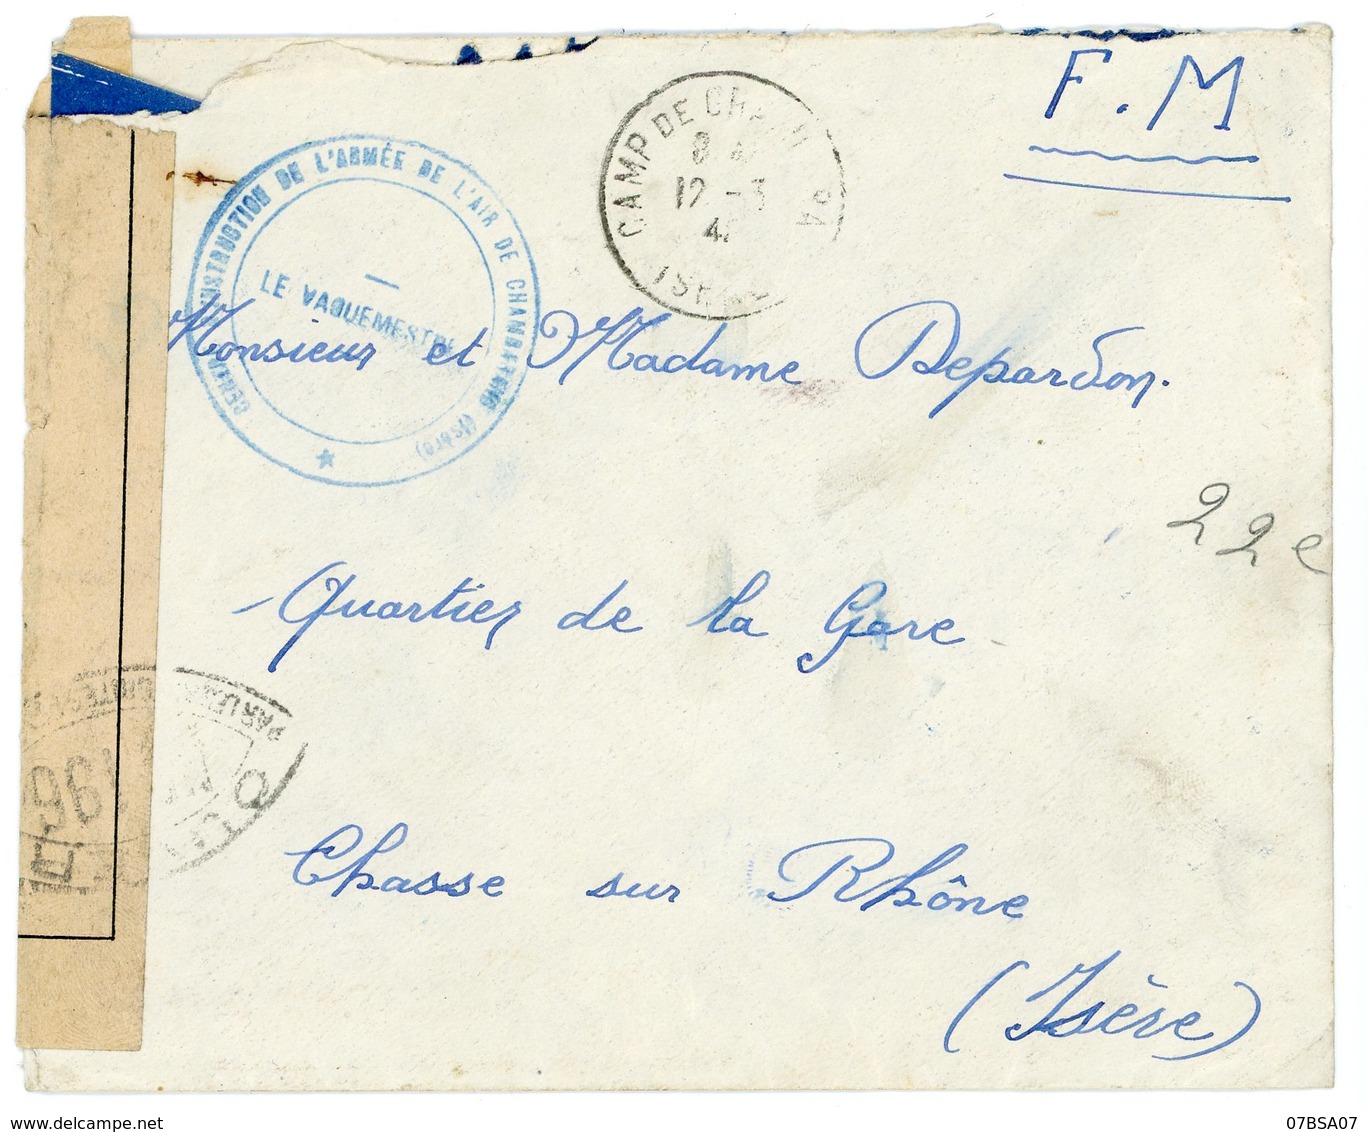 F.M
CAMP DE
12 -3
INSTRUCTION DE L'ARMÉE DE L'AIR DE CHAMBARAND (Isère)
LE VAGUEMESTRE
Monsieur et Madame Depardon.
22e
Quartier de la Gare
Chasse sur Rhône
(Isère)
delcampe.net
07BSA07